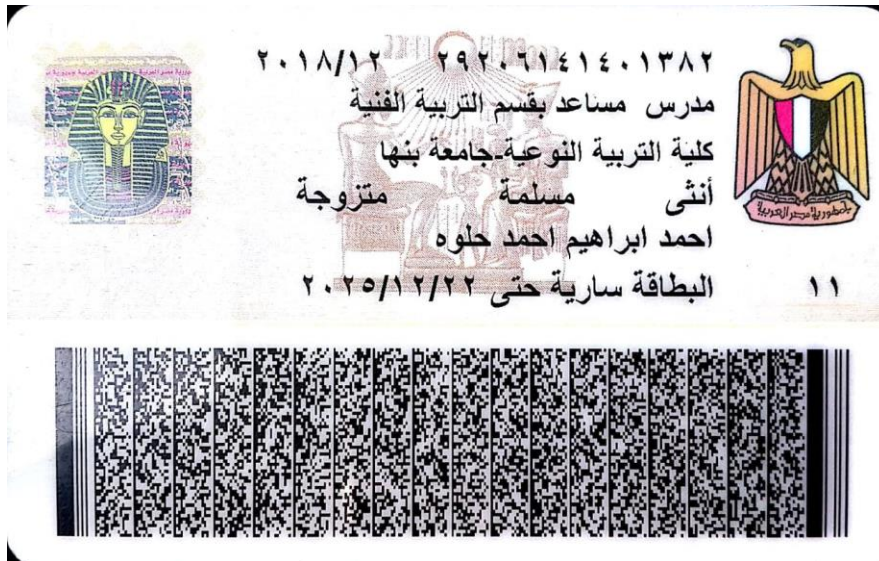 ٢٩٢٠٦١٤١٤٠١٣٨٢ ٢٠١٨/١٢
مدرس مساعد بقسم التربية الفنية
كلية التربية النوعية-جامعة بنها
أنثى مسلمة متزوجة
احمد ابراهيم احمد حلوه
البطاقة سارية حتى ٢٠٢٥/١٢/٢٢
١١
جمهورية مصر العربية